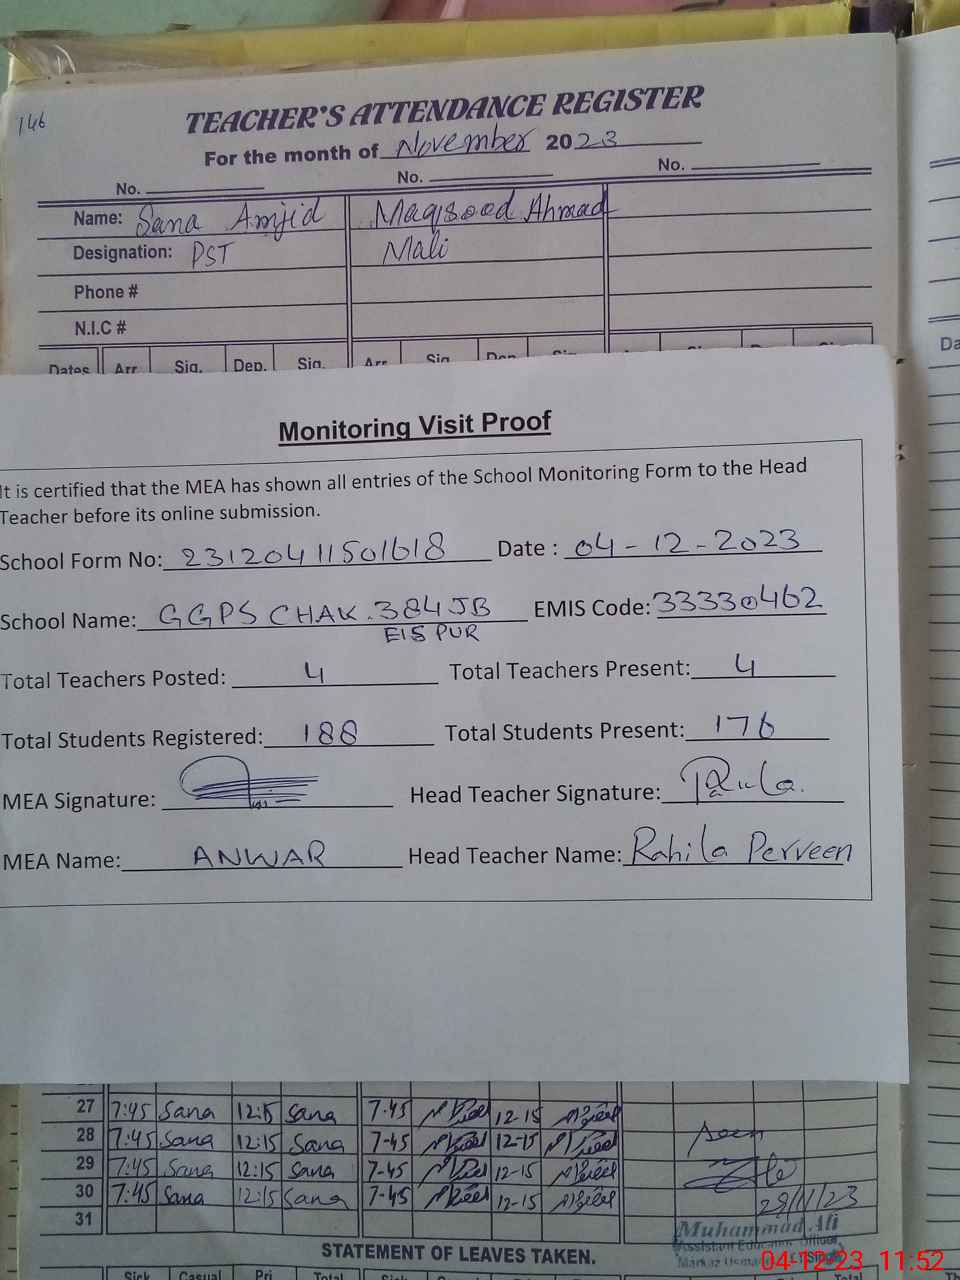 146
TEACHER'S ATTENDANCE REGISTER
For the month of November 2023
No. No. No.
Name: Sana Amjid Maqsood Ahmad
Designation: PST Mali
Phone #
N.I.C #
Dates Arr Sig. Dep. Sig. Arr Sig Dep
Monitoring Visit Proof
It is certified that the MEA has shown all entries of the School Monitoring Form to the Head
Teacher before its online submission.
School Form No: 23120411501618 Date : 04-12-2023
School Name: GGPS CHAK.384JB EMIS Code: 33330462
EIS PUR
Total Teachers Posted: 4 Total Teachers Present: 4
Total Students Registered: 188 Total Students Present: 176
MEA Signature: Head Teacher Signature:
MEA Name: ANWAR Head Teacher Name: Rahila Perveen
27 7:45 Sana 12:15 Sana 7-45 12-15
28 7:45 Sana 12:15 Sana 7-45 12-15 Seen
29 7:45 Sana 12:15 Sana 7-45 12-15
30 7:45 Sana 12:15 Sana 7-45 12-15 29/11/23
31
Muhammad Ali
Assistant Education Officer
Markaz
STATEMENT OF LEAVES TAKEN.
04-12-23 11:52
Sick Casual Pri Total Sick